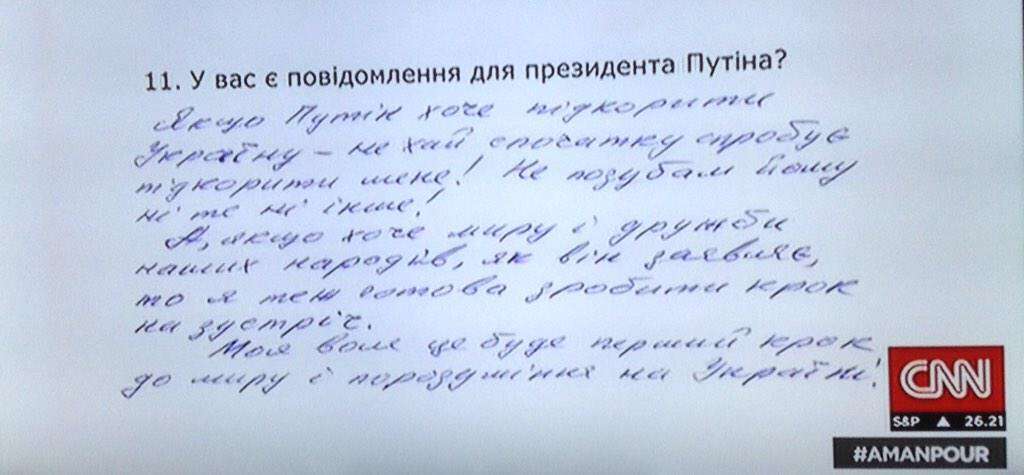 11. У вас є повідомлення для президента Путіна?
Якщо Путін хоче підкорити
Україну – нехай спочатку спробує
підкорити мене! Не по зубам йому
ні те ні інше!
А, якщо хоче миру і дружби
наших народів, як він заявляє,
то я теж готова зробити крок
на зустріч.
Моя воля це буде перший крок
до миру і порозуміння на Україні.
CNN
S&P ▲ 26.21
#AMANPOUR